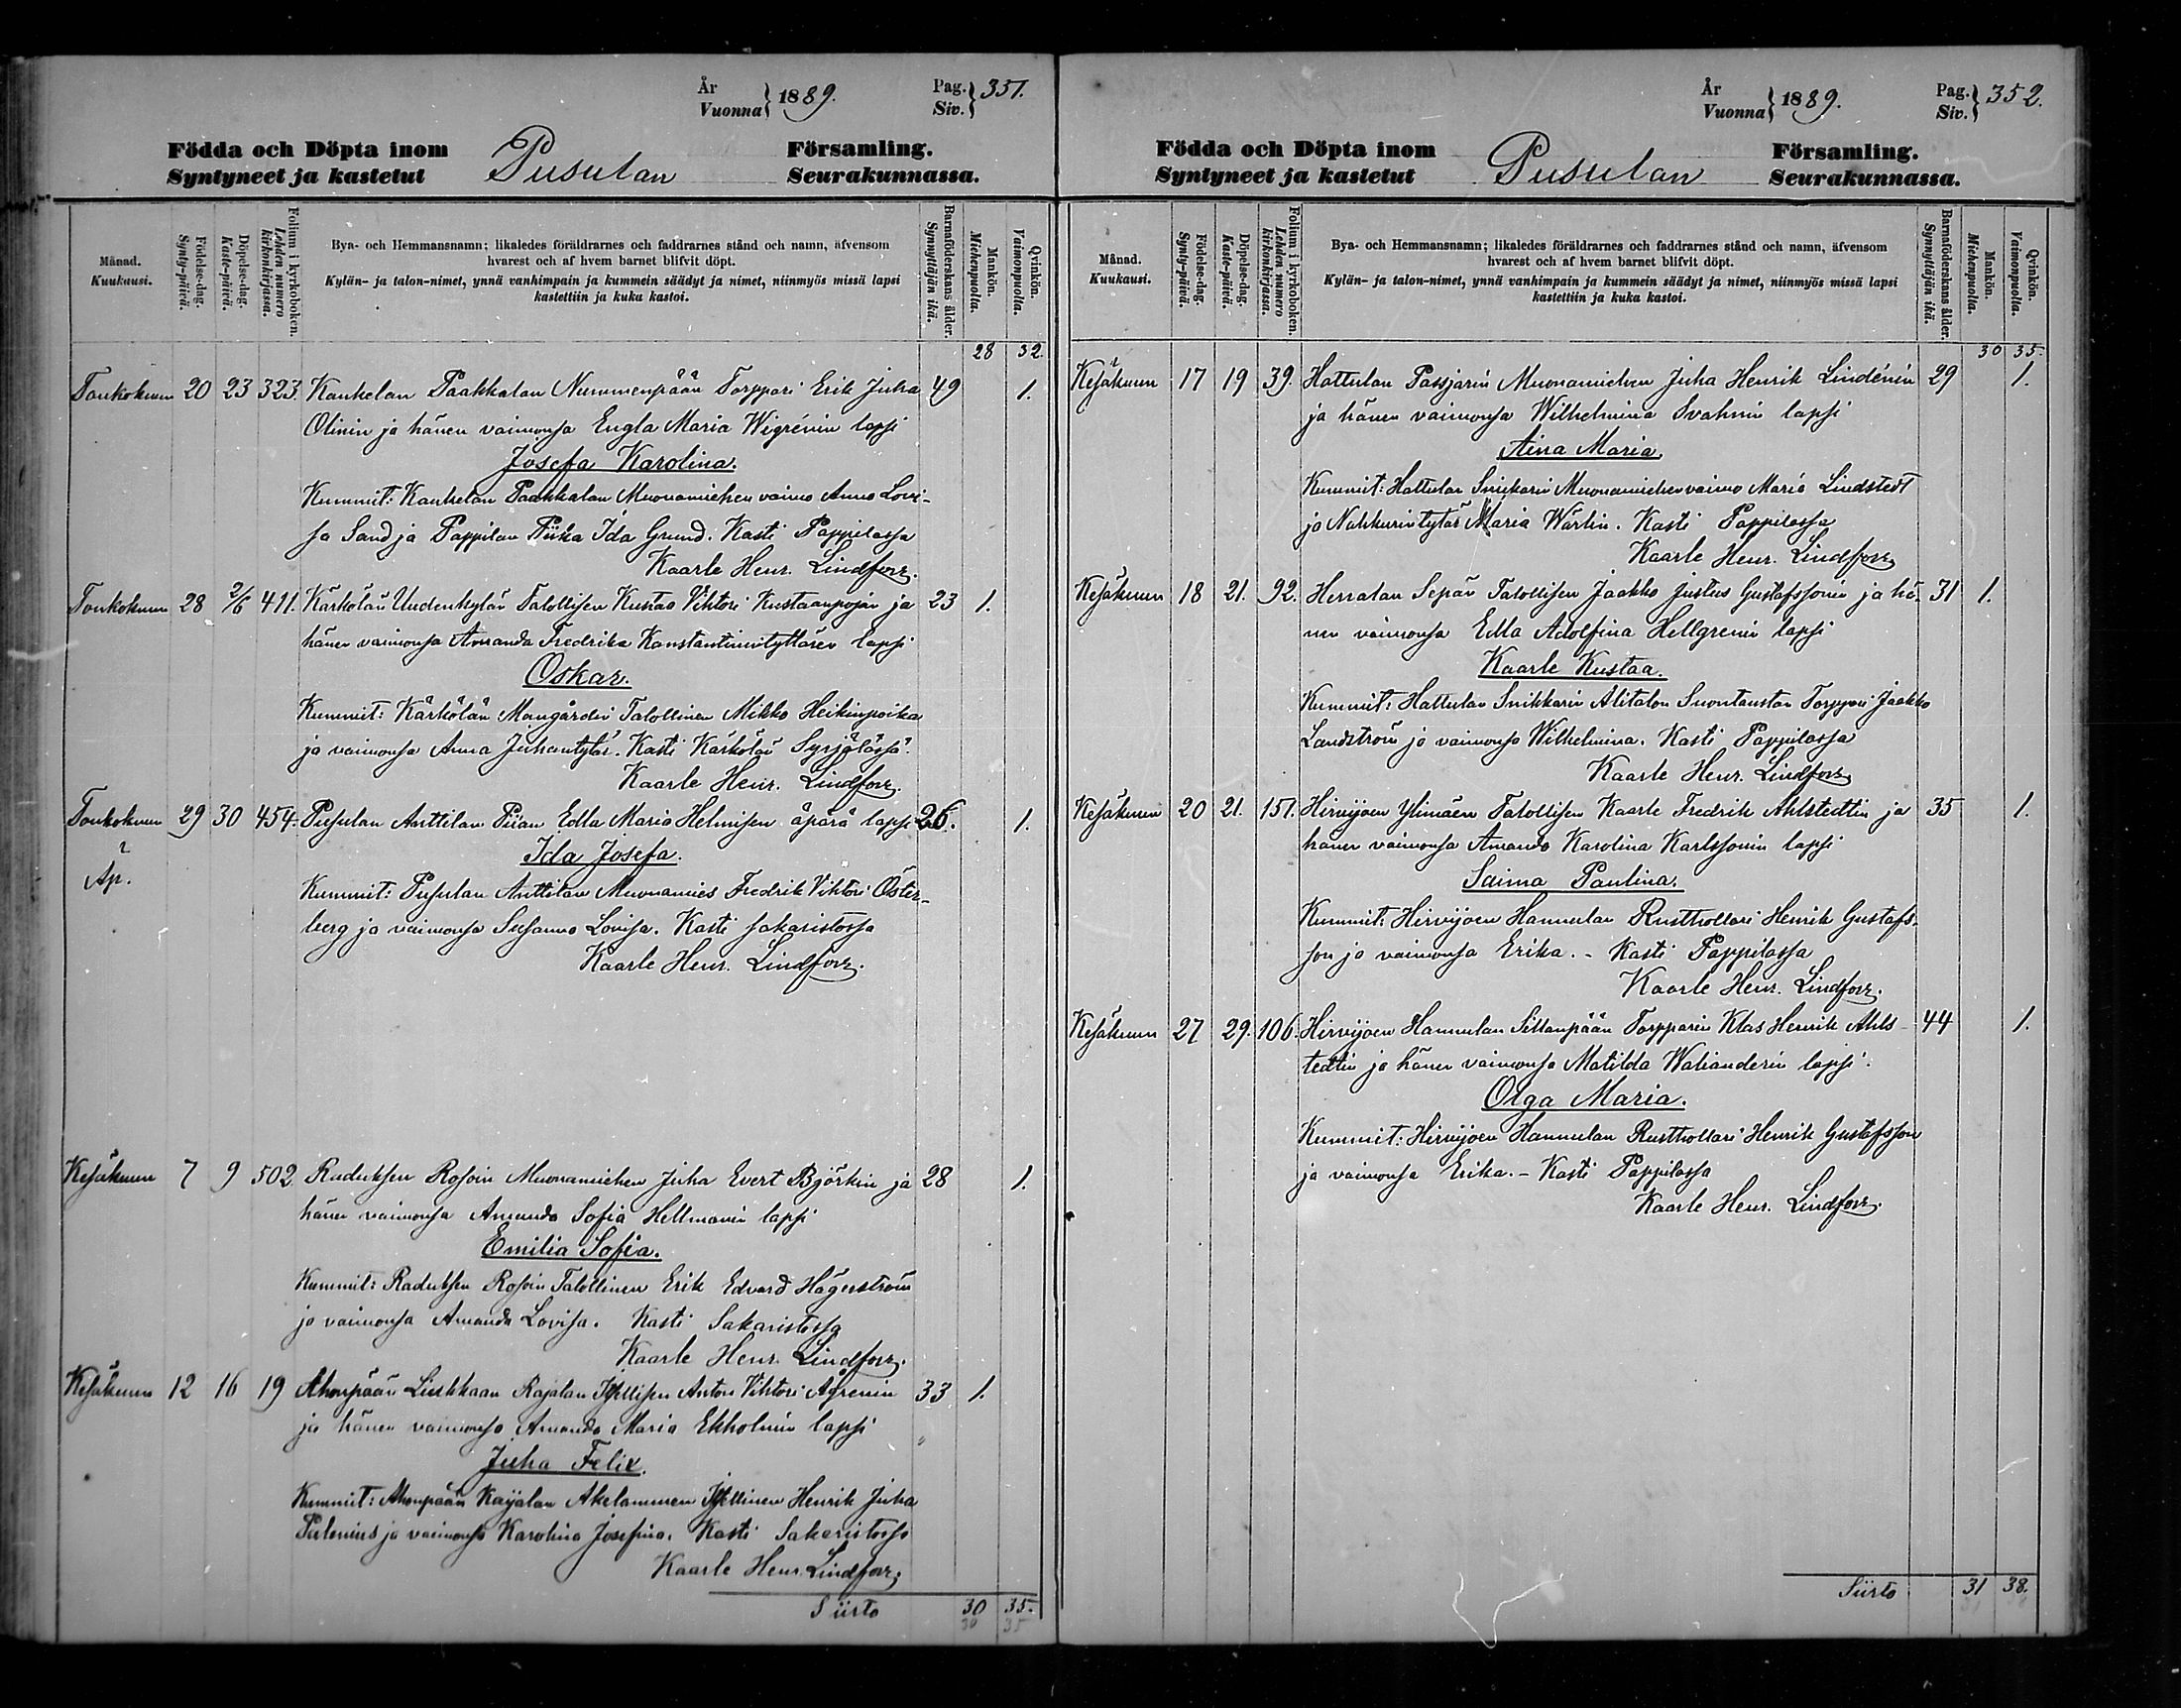 År
Vuonna } 1889.
Pag.
Siv. } 351.
Födda och Döpta inom
Syntyneet ja kastetut
Pusulan
Församling.
Seurakunnassa.
Månad.
Kuukausi.
Födelse-dag.
Synty-päivä.
Döpelse-dag.
Kaste-päivä.
Folium i kyrkoboken.
Lehden numero
kirkonkirjassa.
Bya- och Hemmansnamn; likaledes föräldrarnes och faddrarnes stånd och namn, äfvensom
hvarest och af hvem barnet blifvit döpt.
Kylän- ja talon-nimet, ynnä vanhimpain ja kummein säädyt ja nimet, niinmyös missä lapsi
kastettiin ja kuka kastoi.
Barnaföderskans ålder.
Synnyttäjän ikä.
Mankön.
Miehenpuolta.
Qvinkön.
Vaimonpuolta.
28 32.
Toukokuun 20 23 323. Kaukelan Paakkalan Nummenpään Torppari Erik Juha 49 1.
Olinin ja hänen vaimonsa Engla Maria Wigrénin lapsi
Josefa Karolina.
Kummit: Kaukelan Paakkalan Muonamiehen vaimo Anna Lovi-
sa Sand ja Pappilan Piika Ida Grund. Kasti Pappilassa
Kaarle Henr. Lindforz.
Toukokuun 28 2/6 411. Kärkölän Uudenkylän Talollisen Kustaa Viktori Kustaanpojan ja 23 1.
hänen vaimonsa Amanda Fredrika Konstantinintyttären lapsi
Oskar.
Kummit: Kärkölän Mangårdin Talollinen Mikko Heikinpoika
ja vaimonsa Anna Juhantytär. Kasti Kärkölän Syrjälässä.
Kaarle Henr. Lindforz.
Toukokuun 29 30 454. Pusulan Anttilan Piian Edla Maria Helmisen äpärä lapsi 26. 1.
Ida Josefa.
Äp.
Kummit: Pusulan Anttilan Muonamies Fredrik Viktori Öster-
berg ja vaimonsa Susanna Lovisa. Kasti sakaristossa
Kaarle Henr. Lindforz.
Kesäkuun 7 9 502. Raduksen Rosoin Muonamiehen Juha Evert Björkin ja 28 1.
hänen vaimonsa Amanda Sofia Hellmanin lapsi
Emilia Sofia.
Kummit: Raduksen Rosoin Talollinen Erik Edvard Hägerström
ja vaimonsa Amanda Lovisa. Kasti Sakaristossa
Kaarle Henr. Lindforz.
Kesäkuun 12 16 19 Ahonpään Liukkaan Rajalan Itsellisen Anton Viktori Ågrenin 33 1.
ja hänen vaimonsa Amanda Maria Ekholmin lapsi
Juha Felix.
Kummit: Ahonpään Akelammen Itsellinen Henrik Juha
Palenius ja vaimonsa Karolina Josefina. Kasti Sakaristossa
Kaarle Henr. Lindforz.
Siirto 30 35.
30 35
År
Vuonna } 1889.
Pag.
Siv. } 352.
Födda och Döpta inom
Syntyneet ja kastetut
Pusulan
Församling.
Seurakunnassa.
Månad.
Kuukausi.
Födelse-dag.
Synty-päivä.
Döpelse-dag.
Kaste-päivä.
Folium i kyrkoboken.
Lehden numero
kirkonkirjassa.
Bya- och Hemmansnamn; likaledes föräldrarnes och faddrarnes stånd och namn, äfvensom
hvarest och af hvem barnet blifvit döpt.
Kylän- ja talon-nimet, ynnä vanhimpain ja kummein säädyt ja nimet, niinmyös missä lapsi
kastettiin ja kuka kastoi.
Barnaföderskans ålder.
Synnyttäjän ikä.
Mankön.
Miehenpuolta.
Qvinkön.
Vaimonpuolta.
30 35.
Kesäkuun 17 19 39. Hattulan Passjarin Muonamiehen Juha Henrik Lindénin 29 1.
ja hänen vaimonsa Wilhelmina Svahnin lapsi
Aina Maria.
Kummit: Hattulan Snikarin Muonamiehenvaimo Maria Lindstedt
ja Nahkurintytär Maria Wärlin. Kasti Pappilassa
Kaarle Henr. Lindforz
Kesäkuun 18 21. 92. Herralan Sepän Talollisen Jaakko Justus Gustafssonin ja hä- 31 1.
nen vaimonsa Edla Adolfina Hellgrenin lapsi
Kaarle Kustaa.
Kummit: Hattulan Snikkarin Alitalon Suontaustan Torppari Jaakko
Landström ja vaimonsa Wilhelmina. Kasti Pappilassa
Kaarle Henr. Lindforz
Kesäkuun 20 21. 151. Hirvijoen Ylimäen Talollisen Kaarle Fredrik Ahlstedtin ja 35 1.
hänen vaimonsa Amanda Karolina Karlssonin lapsi
Saima Paulina.
Kummit: Hirvijoen Hannulan Rusthollari Henrik Gustafs-
son ja vaimonsa Erika. - Kasti Pappilassa
Kaarle Henr. Lindforz.
Kesäkuun 27 29. 106. Hirvijoen Hannulan Sillanpään Torpparin Klas Henrik Ahls- 44 1.
tedtin ja hänen vaimonsa Matilda Walianderin lapsi.
Olga Maria.
Kummit: Hirvijoen Hannulan Rusthollari Henrik Gustafsson
ja vaimonsa Erika. - Kasti Pappilassa
Kaarle Henr. Lindforz.
Siirto 31 38.